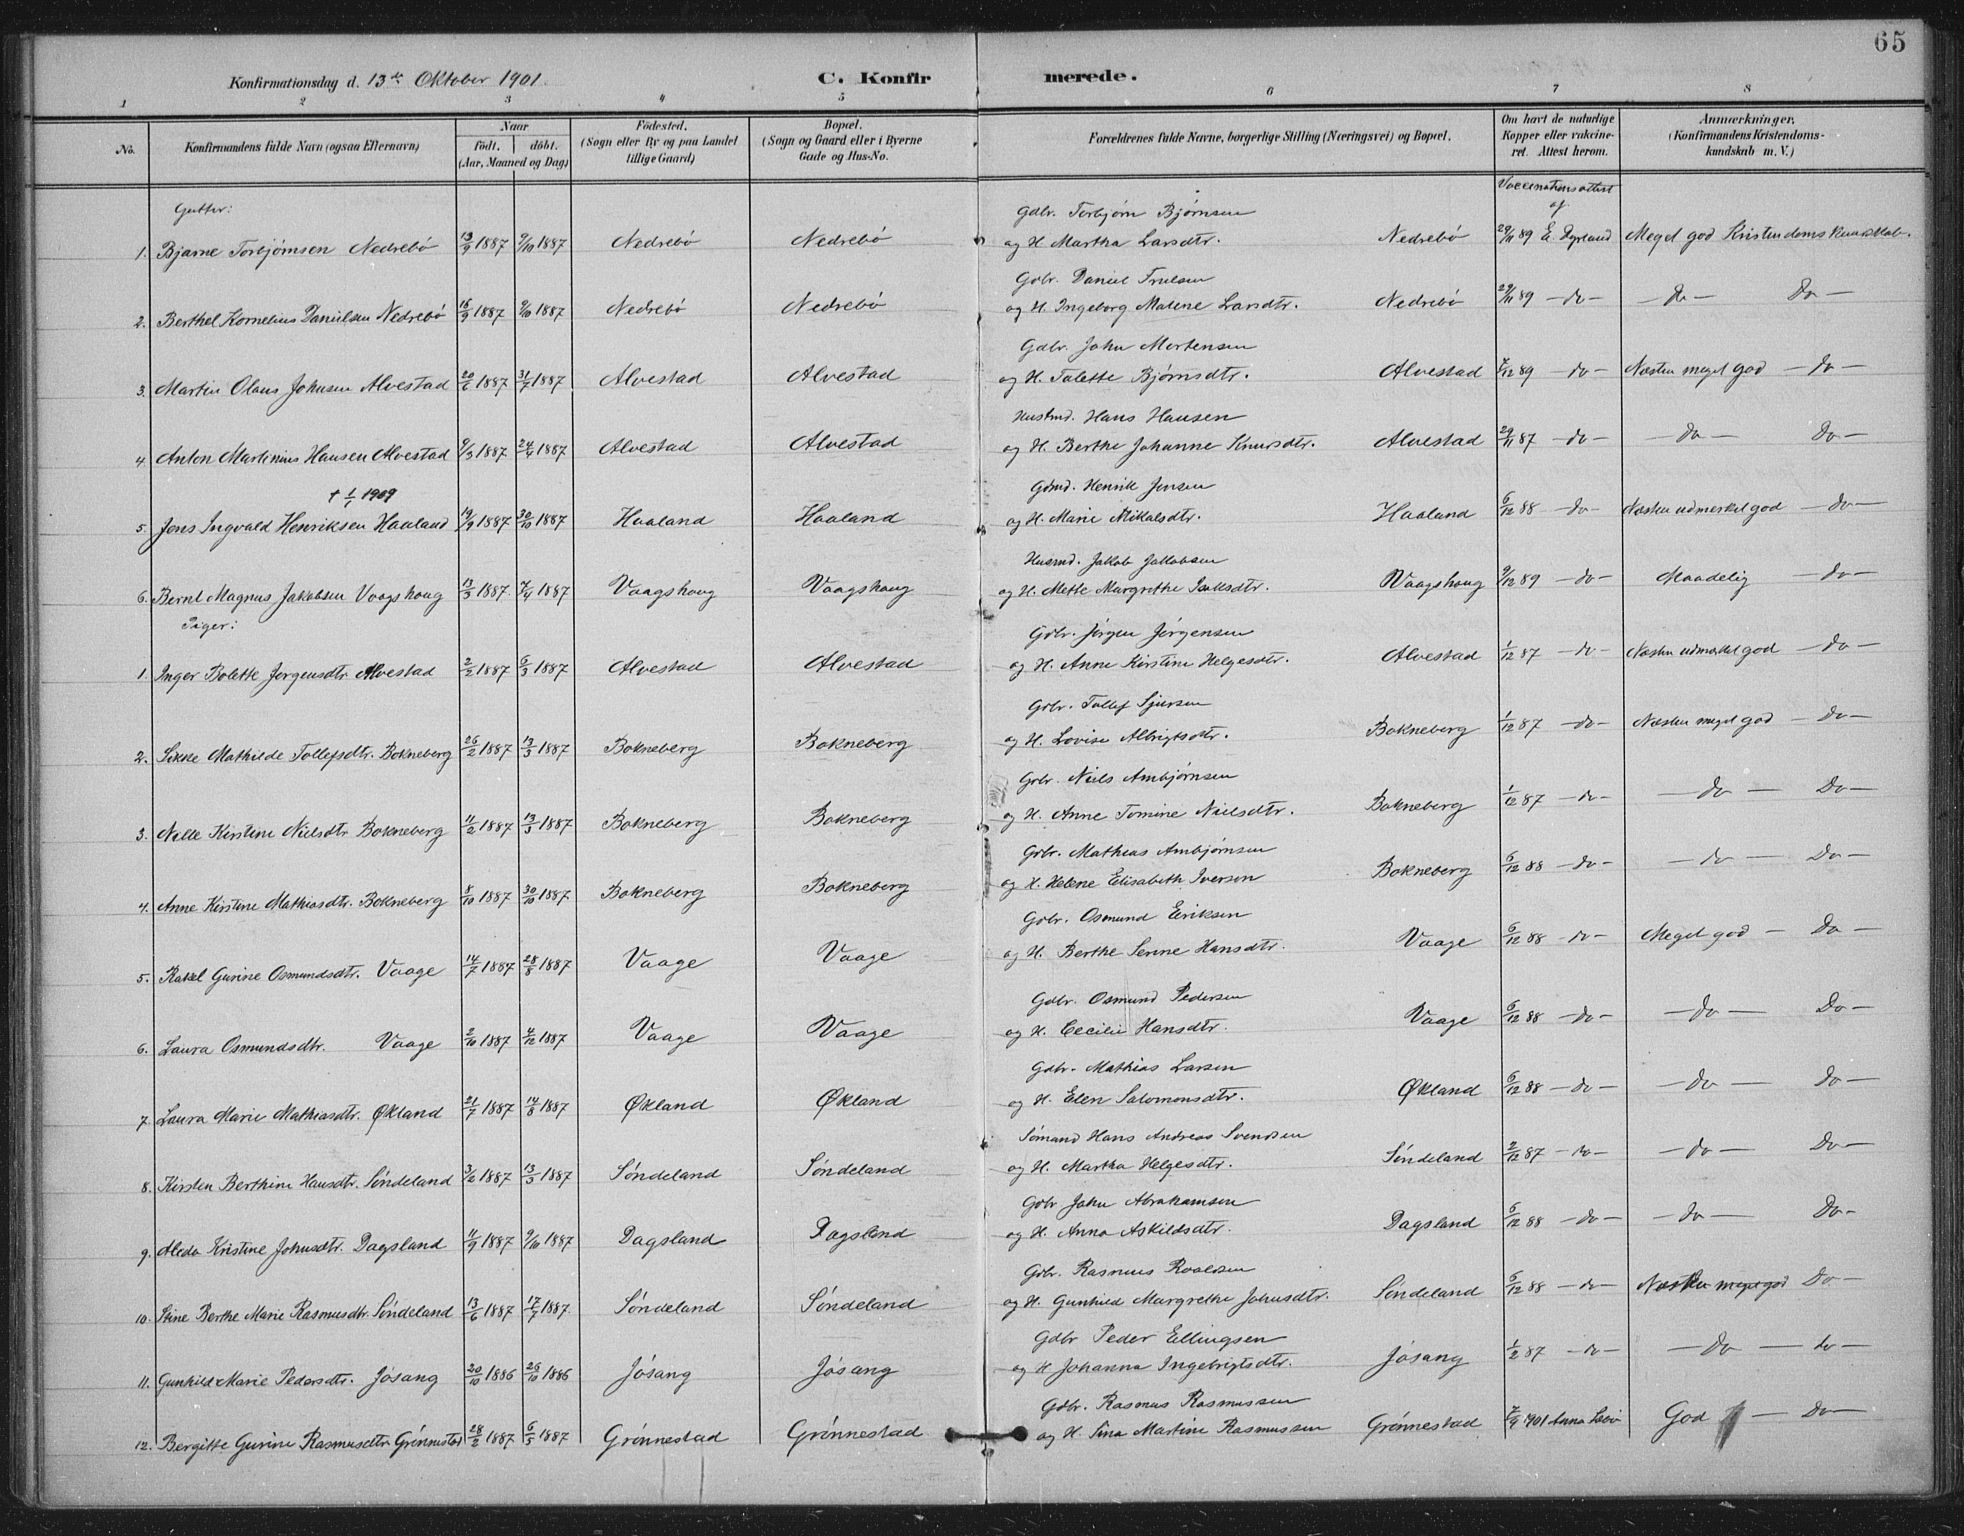 65
Konfirmationsdag d. 13de Oktober 1901. C. Konfirmerede.
1 2 3 4 5 6 7 8
No. Konfirmandens fulde Navn (ogsaa Efternavn) Naar födt. döbt. (Aar, Maaned og Dag) Födested. (Sogn eller By og paa Landet tillige Gaard) Bopæl. (Sogn og Gaard eller i Byerne Gade og Hus-No. Forældrenes fulde Navne, borgerlige Stilling (Næringsvei) og Bopæl. Om havt de naturlige Kopper eller vakcineret. Attest herom. Anmærkninger. (Konfirmandens Kristendomskundskab m. V.)
Gutter: Vaccinationsattest af
Gdbr. Torbjørn Bjørnsen
1. Bjarne Torbjørnsen Nedrebø 13/9 1887 9/10 1887 Nedrebø Nedrebø og H. Martha Larsdtr. Nedrebø 29/11 89 E. Dyrland Meget god Kristendomskundskab.
Gdbr. Daniel Truelsen
2. Berthel Kornelius Danielsen Nedrebø 16/9 1887 9/10 1887 Nedrebø Nedrebø og H. Ingeborg Malene Larsdtr. Nedrebø 29/11 89 – do – – Do – Do –
Gdbr. John Mortensen
3. Martin Olaus Johnsen Alvestad 20/6 1887 31/7 1887 Alvestad Alvestad og H. Tolette Bjørnsdtr. Alvestad 7/12 89 – do – Næsten meget god – Do –
Husmd. Hans Hansen
4. Anton Martinius Hansen Alvestad 9/3 1887 24/4 1887 Alvestad Alvestad og H. Berthe Johanne Knutsdtr. Alvestad 29/11 87 – do – – Do – Do –
† 1/1 1909 Gdmd. Henrik Jensen
5. Jens Ingvald Henriksen Haaland 19/9 1887 30/10 1887 Haaland Haaland og H. Marie Mikalsdtr. Haaland 6/12 88 – do – Næsten udmerket god – do –
Husmd. Jakob Jakobsen
6. Bernt Magnus Jakobsen Vaagshaug 13/3 1887 7/4 1887 Vaagshaug Vaagshaug og H. Mette Margrethe Vaagshaug 9/12 89 – do – Maadelig – do –
Piger:
Gdbr. Jørgen Jørgensen
1. Inger Bolette Jørgensdtr. Alvestad 2/2 1887 6/3 1887 Alvestad Alvestad og H. Anne Kirstine Helgesdtr. Alvestad 1/12 87 – do – Næsten udmerket god – Do –
Gdbr. Tollef Sjursen
2. Sikke Mathilde Tollefsdtr. Bokneberg 26/2 1887 13/3 1887 Bokneberg Bokneberg og H. Lovise Albrigtsdtr. Bokneberg 1/12 87 – do – Næsten meget god – Do –
Gdbr. Niels Ambjørnsen
3. Nelle Kirstine Nielsdtr Bokneberg 11/2 1887 13/3 1887 Bokneberg Bokneberg og H. Anne Tomine Nielsdtr. Bokneberg 1/12 87 – do – – do – Do –
Gdbr. Mathias Ambjørnsen
4. Anne Kirstine Mathiasdtr. Bokneberg 8/10 1887 30/10 1887 Bokneberg Bokneberg og H. Helene Elisabeth Iversen Bokneberg 6/12 88 – do – – do – Do –
Gdbr. Osmund Eriksen
5. Rakel Gurine Osmundsdtr. Vaage 14/7 1887 28/8 1887 Vaage Vaage og H. Berthe Serine Hansdtr. Vaage 6/12 88 – do – Meget god – Do –
Gdbr. Osmund Pedersen
6. Laura Osmundsdtr. Vaage 2/10 1887 4/12 1887 Vaage Vaage og H. Cecilie Hansdtr. Vaage 6/12 88 – do – – Do – Do –
Gdbr. Mathias Larsen
7. Laura Marie Mathiasdtr. Økland 21/7 1887 14/8 1887 Økland Økland og H. Elen Salomonsdtr. Økland 6/12 88 – do – – Do – Do –
Sømand Hans Andreas Svendsen
8. Kirsten Berthine Hansdtr. Søndeland 3/2 1887 13/3 1887 Søndeland Søndeland og H. Martha Helgesdtr. Søndeland 2/12 87 – do – – do – Do –
Gdbr John Abrahamsen
9. Aleda Kristine Johnsdtr. Dagsland 11/9 1887 9/10 1887 Dagsland Dagsland og H. Anna Askildsdtr. Dagsland 6/12 88 – do – – do – Do –
Gdbr. Rasmus Roaldsen
10. Stine Berthe Marie Rasmusdtr. Søndeland 13/6 1887 17/7 1887. Søndeland Søndeland og H. Gunhild Margrethe Johnsdtr. Søndeland 6/12 88 – do – Næsten meget god Do –
Gdbr Peder Ellingsen
11. Gunhild Marie Pedersdtr. Jøsang 20/10 1886 26/10 1886 Jøsang Jøsang og H Johanna Ingebrigtsdtr. Jøsang 1/2 87 – do – – Do – do –
Gdbr. Rasmus Rasmussen
12. Bergitte Gurine Rasmusdtr Grønnestad 28/2 1887 6/5 1887 Grønnestad Grønnestad og H. Sina Martine Rasmussen Grønnestad 7/9 1901 Anna God – Do –